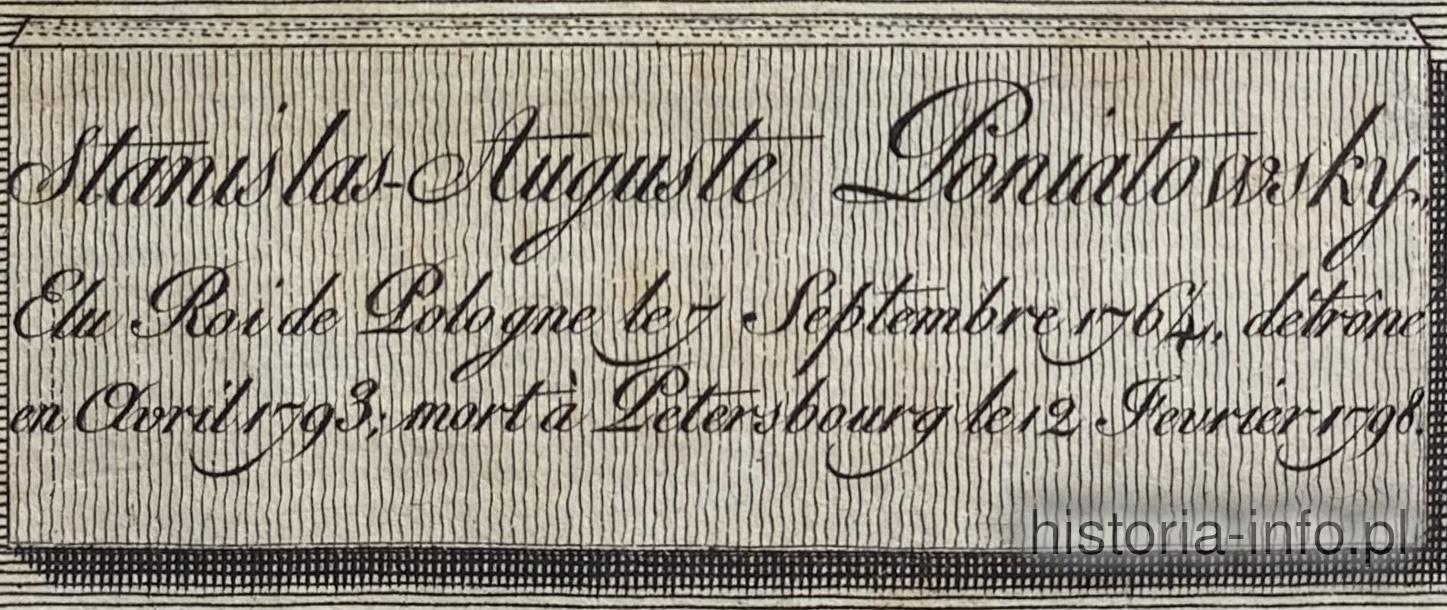 Stanislas-Auguste Poniatowsky,
Elu Roi de Pologne le 7 Septembre 1764, détrône
en Avril 1793; mort à Petersbourg le 12 Fevrier 1798.
historia-info.pl